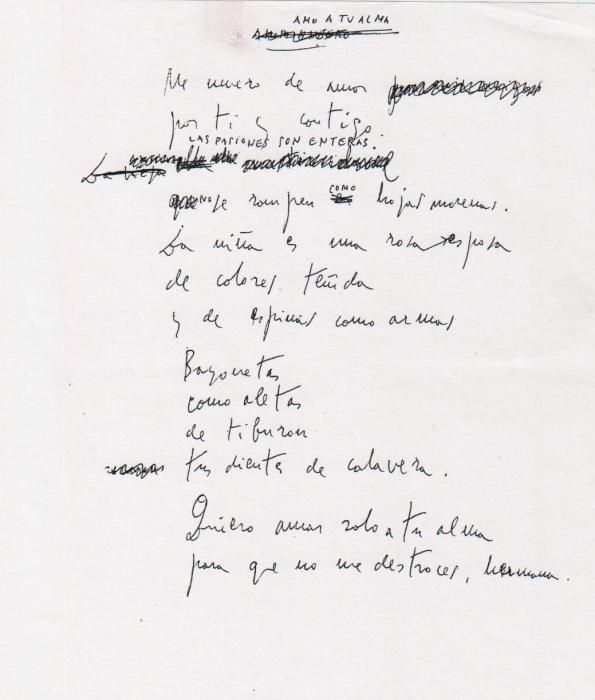 AMO A TU ALMA
Me muero de amor
por ti y contigo.
LAS PASIONES SON ENTERAS.
NO se rompen COMO hojas morenas.
La niña es una rosa esposa
de colores teñida
y de espinas como armas
Bayonetas
como aletas
de tiburon
tus dientes de calavera.
Quiero amar solo a tu alma
para que no me destroces, hermana.